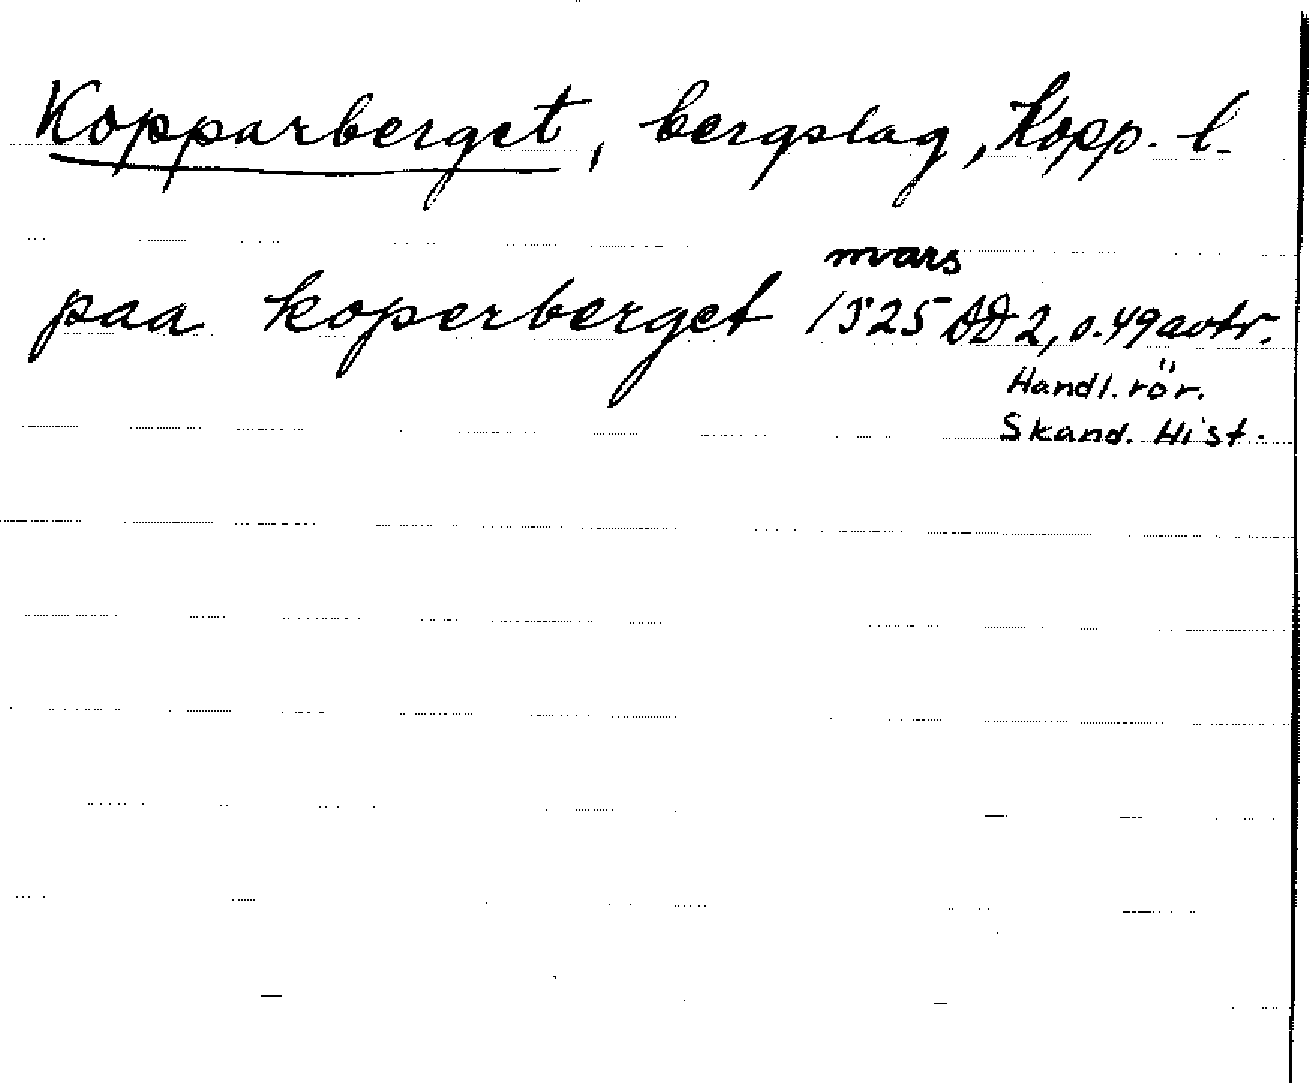 Kopparberget, bergslag, Kopp. l.
mars
paa koperberget 1525 DD 2, s. 49 avtr.
Handl. rör.
Skand. Hist.